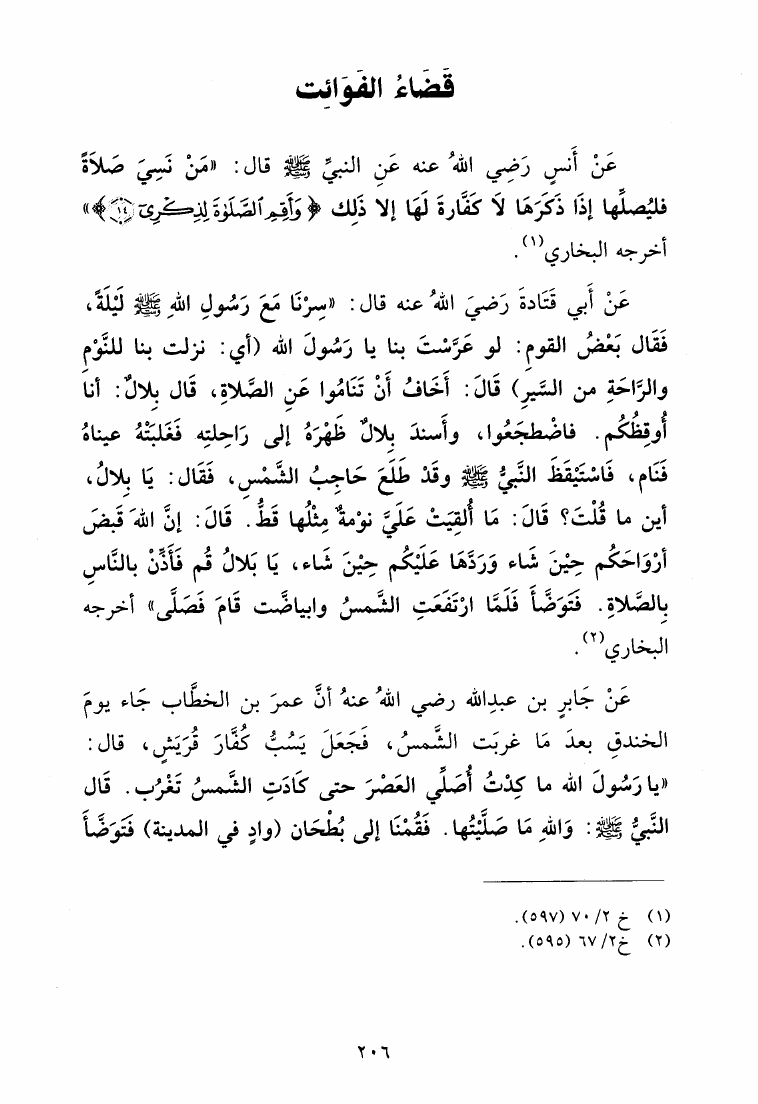 قَضَاءُ الفَوَائِت
عَنْ أَنسٍ رَضِي اللهُ عنه عَنِ النبيِّ ﷺ قال: «مَنْ نَسِيَ صَلاَةً
فليُصلِّها إذَا ذَكَرَهَا لَا كَفَّارةَ لَهَا إلا ذَلِك ﴿وَأَقِمِ ٱلصَّلَوٰةَ لِذِكْرِىٓ ١٤﴾»
أخرجه البخاري(١).
عَنْ أبي قَتَادةَ رَضيَ اللهُ عنه قال: «سِرْنَا مَعَ رَسُولِ اللهِ ﷺ لَيْلَةً،
فَقَال بَعْضُ القومِ: لو عَرَّسْتَ بنا يا رَسُولَ الله (أي: نزلت بنا للنَّوْمِ
والرَّاحَةِ من السَّيرِ) قَالَ: أخَافُ أنْ تَنَامُوا عَنِ الصَّلاةِ، قَال بِلالٌ: أنا
أُوقِظُكُم. فاضْطجَعُوا، وأَسندَ بِلالٌ ظَهْرَهُ إلى رَاحِلتِه فَغَلبَتْهُ عيناهُ
فَنَام، فَاسْتَيْقَظَ النَّبيُّ ﷺ وقَدْ طَلَعَ حَاجِبُ الشَّمْسِ، فقَال: يَا بِلالُ،
أين ما قُلْتَ؟ قَالَ: مَا أُلقِيَتْ عَلَيَّ نوْمةٌ مِثْلُها قطُّ. قَالَ: إنَّ اللهَ قَبضَ
أرْوَاحَكُم حِيْنَ شَاء وَرَدَّهَا عَلَيْكُم حِيْنَ شَاء، يَا بَلالُ قُم فَأَذِّنْ بالنَّاسِ
بِالصَّلاةِ. فَتَوَضَّأَ فَلَمَّا ارْتَفَعَتِ الشَّمسُ وابياضَّت قَامَ فَصَلَّى» أخرجه
البخاري(٢).
عَنْ جَابرٍ بن عبدِالله رضي اللهُ عنهُ أنَّ عمرَ بن الخطَّاب جَاء يومَ
الخندقِ بعدَ مَا غربَت الشَّمسُ، فَجَعَلَ يَسُبُّ كُفَّارَ قُرَيْشٍ، قال:
«يا رَسُولَ الله ما كِدْتُ أُصَلِّي العَصْرَ حتى كَادَتِ الشَّمسُ تَغْرُب. قَال
النَّبيُّ ﷺ: وَاللهِ مَا صَلَّيْتُها. فَقُمْنَا إلى بُطْحَان (وادٍ في المدينة) فَتَوَضَّأَ
(١) خ ٢/ ٧٠ (٥٩٧).
(٢) خ٢/ ٦٧ (٥٩٥).
٢٠٦